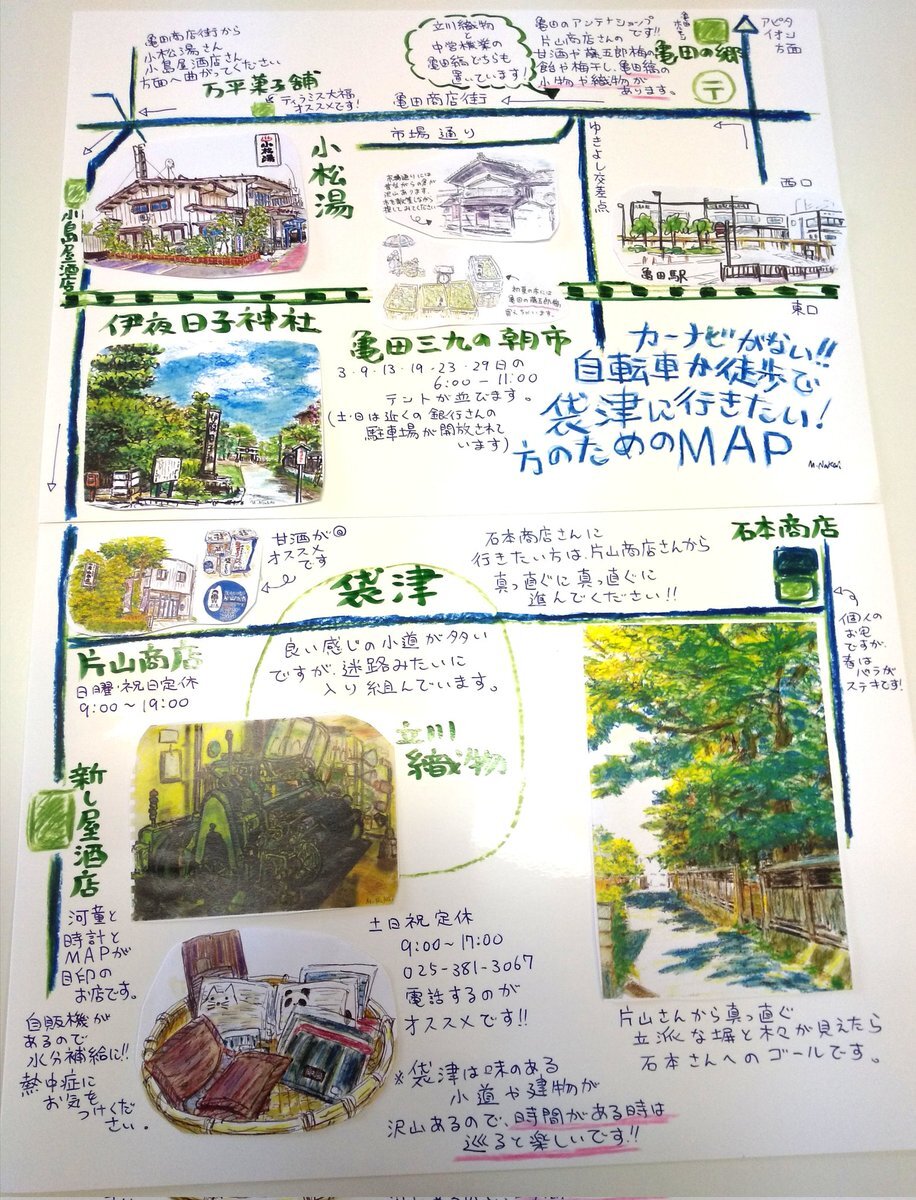 亀田商店街から
小松湯さん
小島屋酒店さん
方面へ曲がってください
万平菓子舗
ティラミス大福
オススメです!
立川織物
と
中営機業の
亀田縞どちらも
置いています!
亀田のアンテナショップ
です!!
片山商店さんの
甘酒や藤五郎梅の
飴や梅干し、亀田縞の
小物や織物が
あります。
亀田の郷
〒
アピタ
イオン
方面
亀田商店街
市場通り
ゆきよし交差点
西口
小松湯
小松湯
小島屋酒店
市場通りには
沢山あります。
亀田駅
東口
伊夜日子神社
亀田三九の朝市
3・9・13・19・23・29日の
6:00-11:00
テントが並びます。
(土・日は近くの銀行さんの
駐車場が開放されて
います)
カーナビがない!!
自転車か徒歩で
袋津に行きたい!
方のためのMAP
M.Nakai
甘酒が
オススメ
です
袋津
石本商店さんに
行きたい方は、片山商店さんから
真っ直ぐに真っ直ぐに
進んでください!!
石本商店
個人の
お宅
ですが、
春は
バラが
ステキです!
片山商店
日曜・祝日定休
9:00〜19:00
良い感じの小道が多い
ですが、迷路みたいに
入り組んでいます。
立川
織物
新し屋酒店
河童と
時計と
MAPが
目印の
お店です。
自販機が
あるので
水分補給に!!
熱中症に
お気を
つけくだ
さい。
土日祝定休
9:00〜17:00
025-381-3067
電話するのが
オススメです!!
※袋津は味のある
小道や建物が
沢山あるので、時間がある時は
巡ると楽しいです!!
片山さんから真っ直ぐ
立派な塀と木々が見えたら
石本さんへのゴールです。